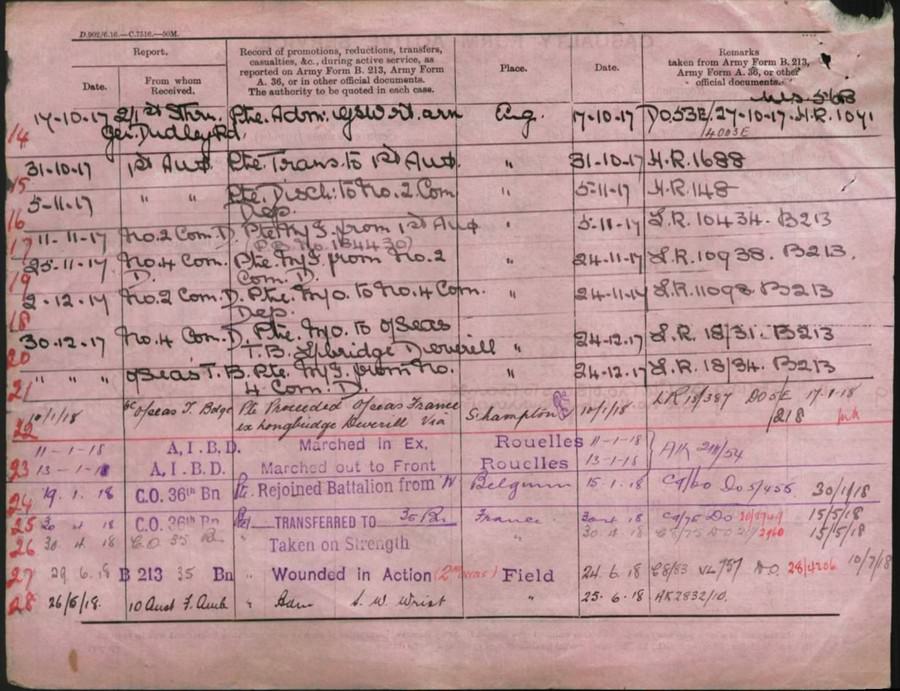 D.902/6.16.—C.7516.—50M.
Report. Record of promotions, reductions, transfers, casualties, &c., during active service, as reported on Army Form B. 213, Army Form A. 36, or in other official documents. The authority to be quoted in each case. Place. Date. Remarks taken from Army Form B. 213, Army Form A. 36, or other official documents.
Date. From whom Received.
14 17-10-17 2/1st Pte. Adm. GSW rt. arm Eng. 17-10-17 DO53E/27-10-17. H.R.1041
Dudley Rd. 4003E
15 31-10-17 1st Aux. Pte. Trans. to 1st Aux. " 31-10-17 H.R.1688
16 5-11-17 " " Pte. Disch. to No. 2 Com. Dep. " 5-11-17 H.R.148
17 11-11-17 No. 2 Com. D. Pte. M/I. from 1st Aux " 5-11-17 L.R. 10434. B213
19 25-11-17 No. 4 Com. D. Pte. M/I. from No. 2 Com. D. " 24-11-17 L.R. 10938. B213.
18 2-12-17 No. 2 Com. D. Pte. M/O. to No. 4 Com. Dep. " 24-11-17 L.R. 11098. B213
20 30-12-17 No. 4 Com. D. Pte. M/O. to O/Seas T.B. Deverill " 24-12-17 L.R. 18/31. B213
21 " " " O/Seas T.B. Pte. M/I. from No. 4 Com. D. " 24-12-17 L.R. 18/34. B213
22 10/1/18 O/seas T. Bdge Pte Proceeded O/seas France ex Longbridge Deverill Via S.hampton 10/1/18 LR 18/387 DO5E 17-1-18
/218
11-1-18 A.I.B.D. Marched in Ex. Rouelles 11-1-18
23 13-1-18 A.I.B.D. Marched out to Front Rouelles 13-1-18
24 19.1.18 C.O. 36th Bn Pte. Rejoined Battalion from Belgium 15.1.18 DO 5/455 30/1/18
25 30 4 18 C.O. 36th Bn TRANSFERRED TO 35 Bn France 30 4 18 C9/75 DO 15/5/18
26 30.4.18 C.O. 35 Bn " Taken on Strength " 30.4.18 C8/75 15/5/18
27 29.6.18 B 213 35 Bn " Wounded in Action (2nd occas) Field 24.6.18 C8/83 D.O. 28/4206 10/7/18
28 26/6/18. 10 Aust F. Amb " Adm S.W. Wrist " 25-6-18 AK2832/10.